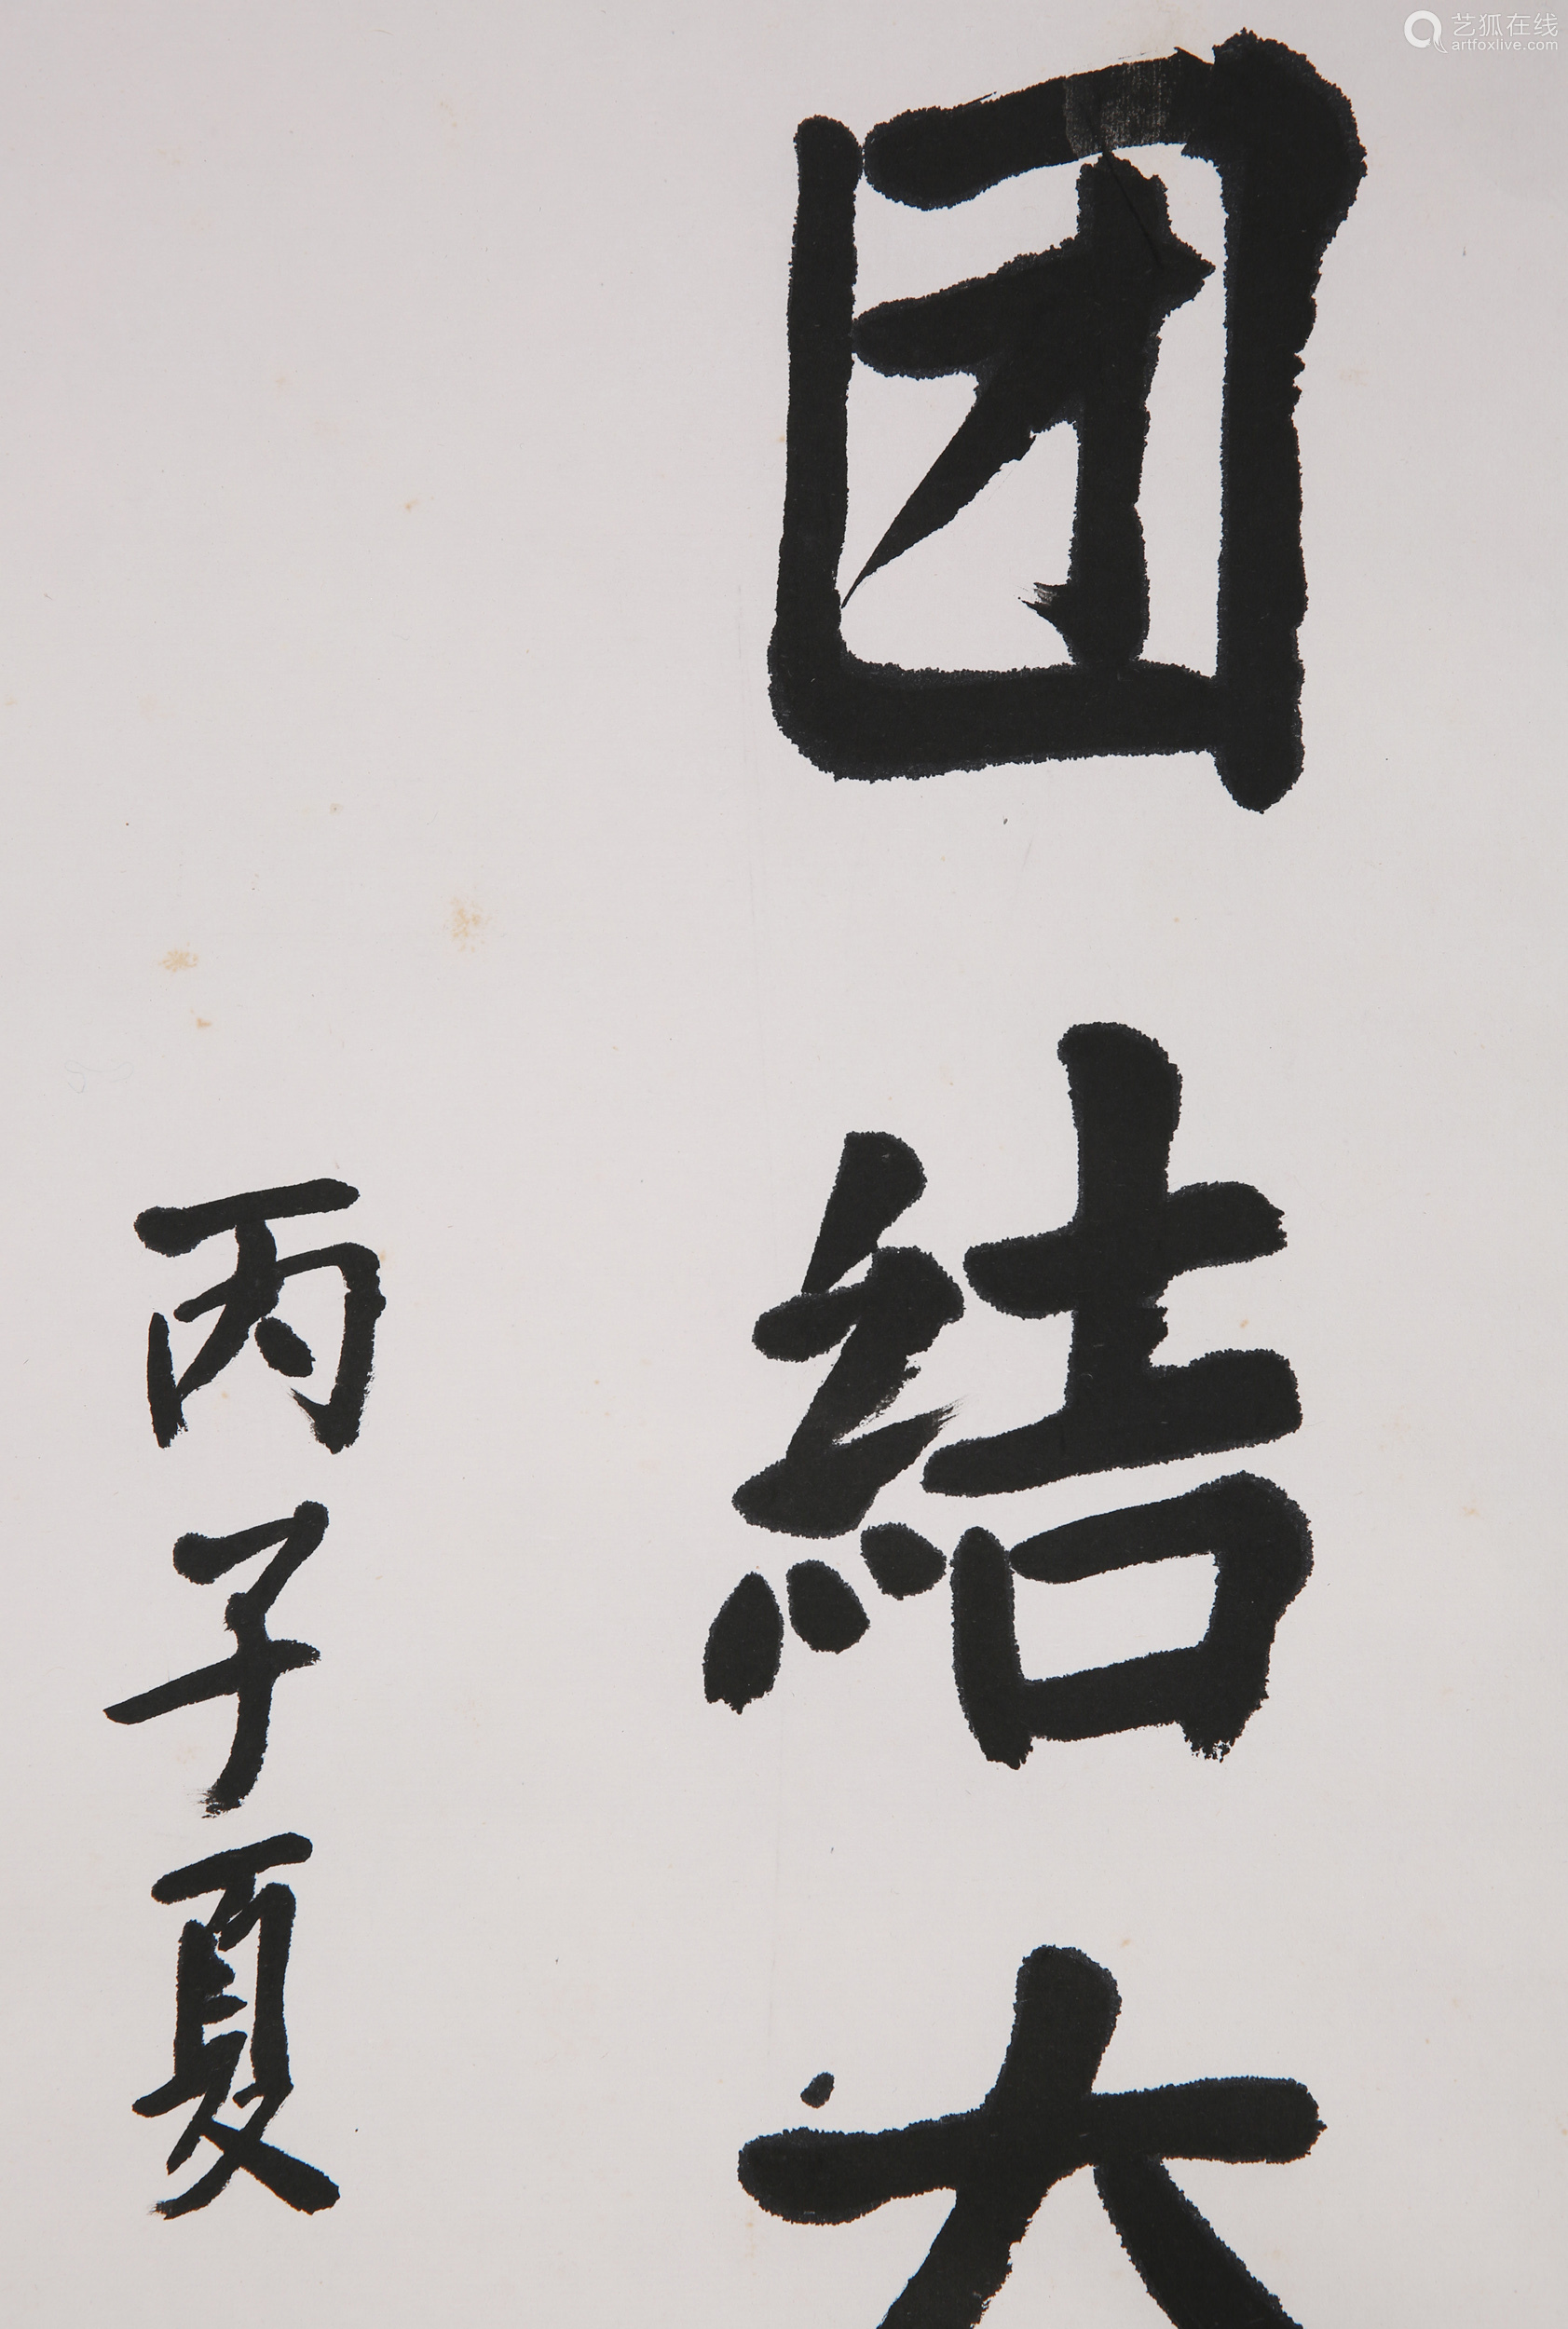 团結大
丙子夏
艺狐在线
artfoxlive.com